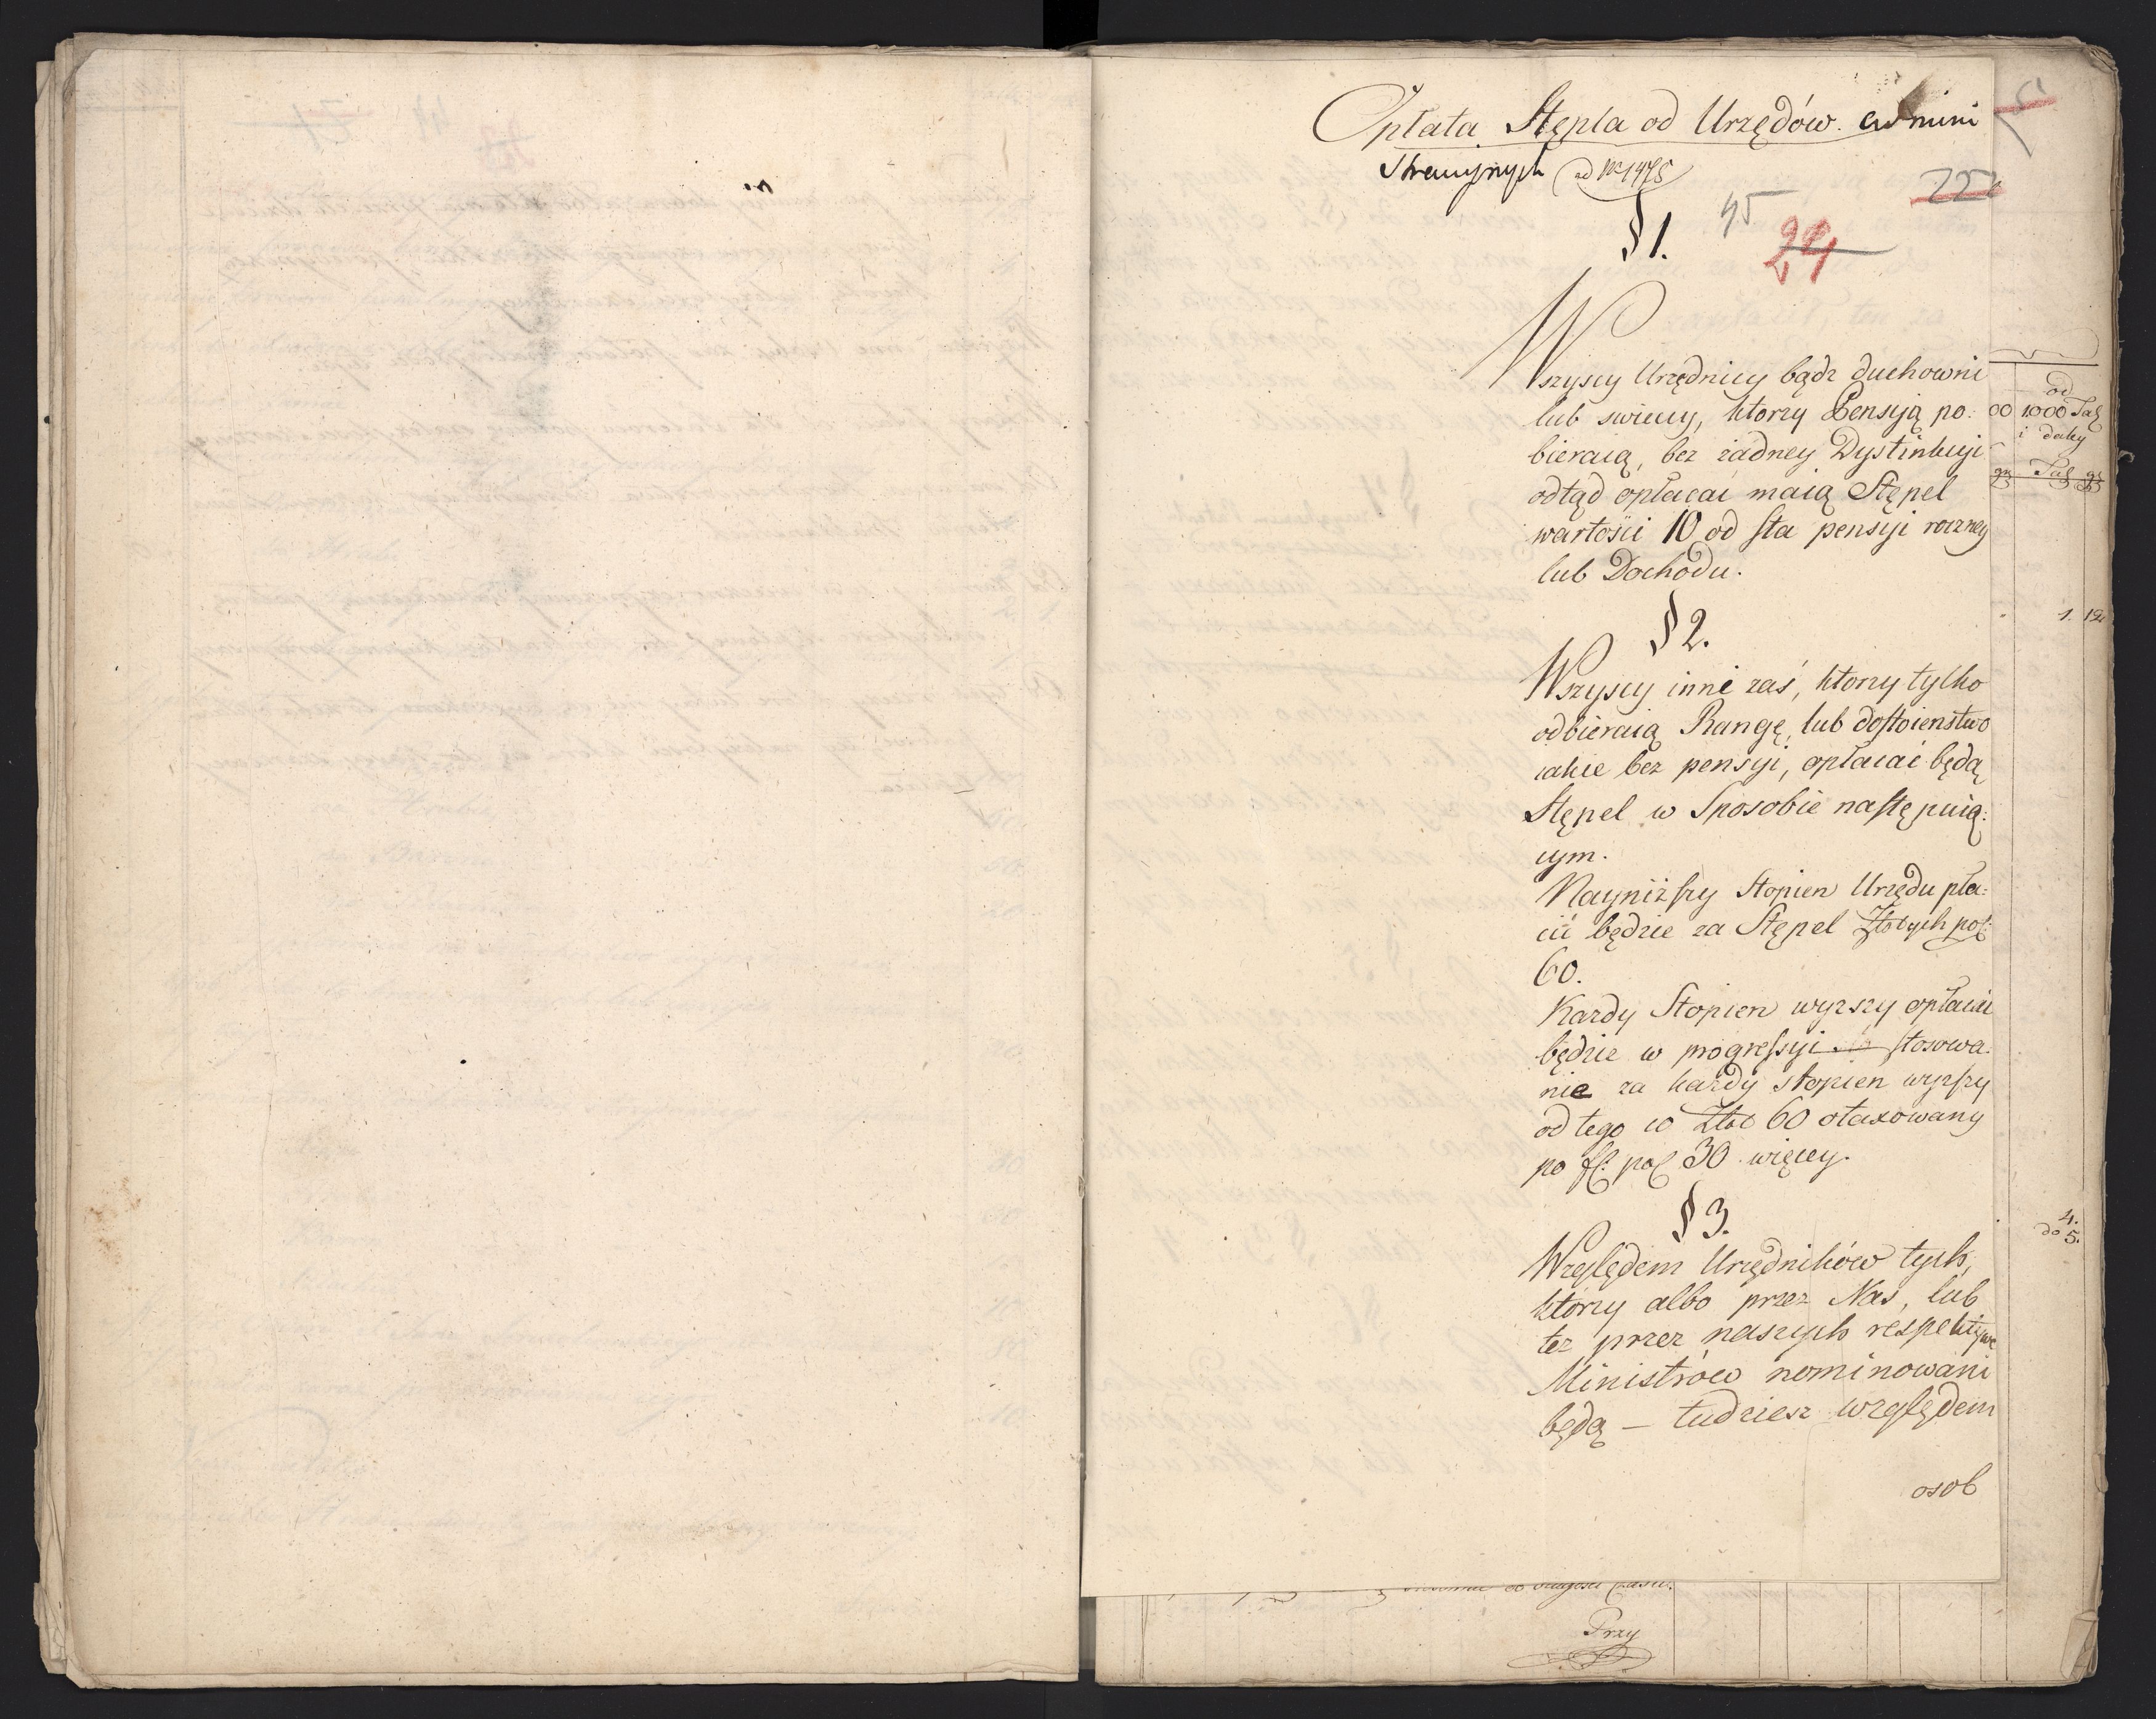 Opłata Stępla od Urzędów admini
stracyjnych ad Nr 1475
51
252
§ 1.
45
24
Wszyscy Urzędnicy bądz duchowni
lub swieccy, ktorzy Pensyją po:
bieraią, bez żadney Dystinkcyi
odtąd opłacać maią Stępel
wartości 10 od sta pensyi roczney
lub Dochodu.
§ 2.
Wszyscy inni zaś, ktorzy tylko
odbieraią Rangę, lub dostoienstwo
iakie bez pensyi, opłacać będą
Stępel w Sposobie następuią:
cym.
Nayniższy Stopien Urzędu pła:
cić będzie za Stępel Złotych pol:
60.
Kazdy Stopien wyzszy opłacać
będzie w progressyi stosowa:
nie za każdy stopien wyższy
od tego w Złot 60 otaxowany
po fl: pol 30 więcey.
§ 3.
Względem Urzędników tych,
którzy albo przez Nas, lub
też przez naszych respektywe
Ministrów nominowani
będą – tudziesz względem
osob
od
00 1000 Tal
i daley
gr Tal gr
1. 12
4.
do 5.
Przy